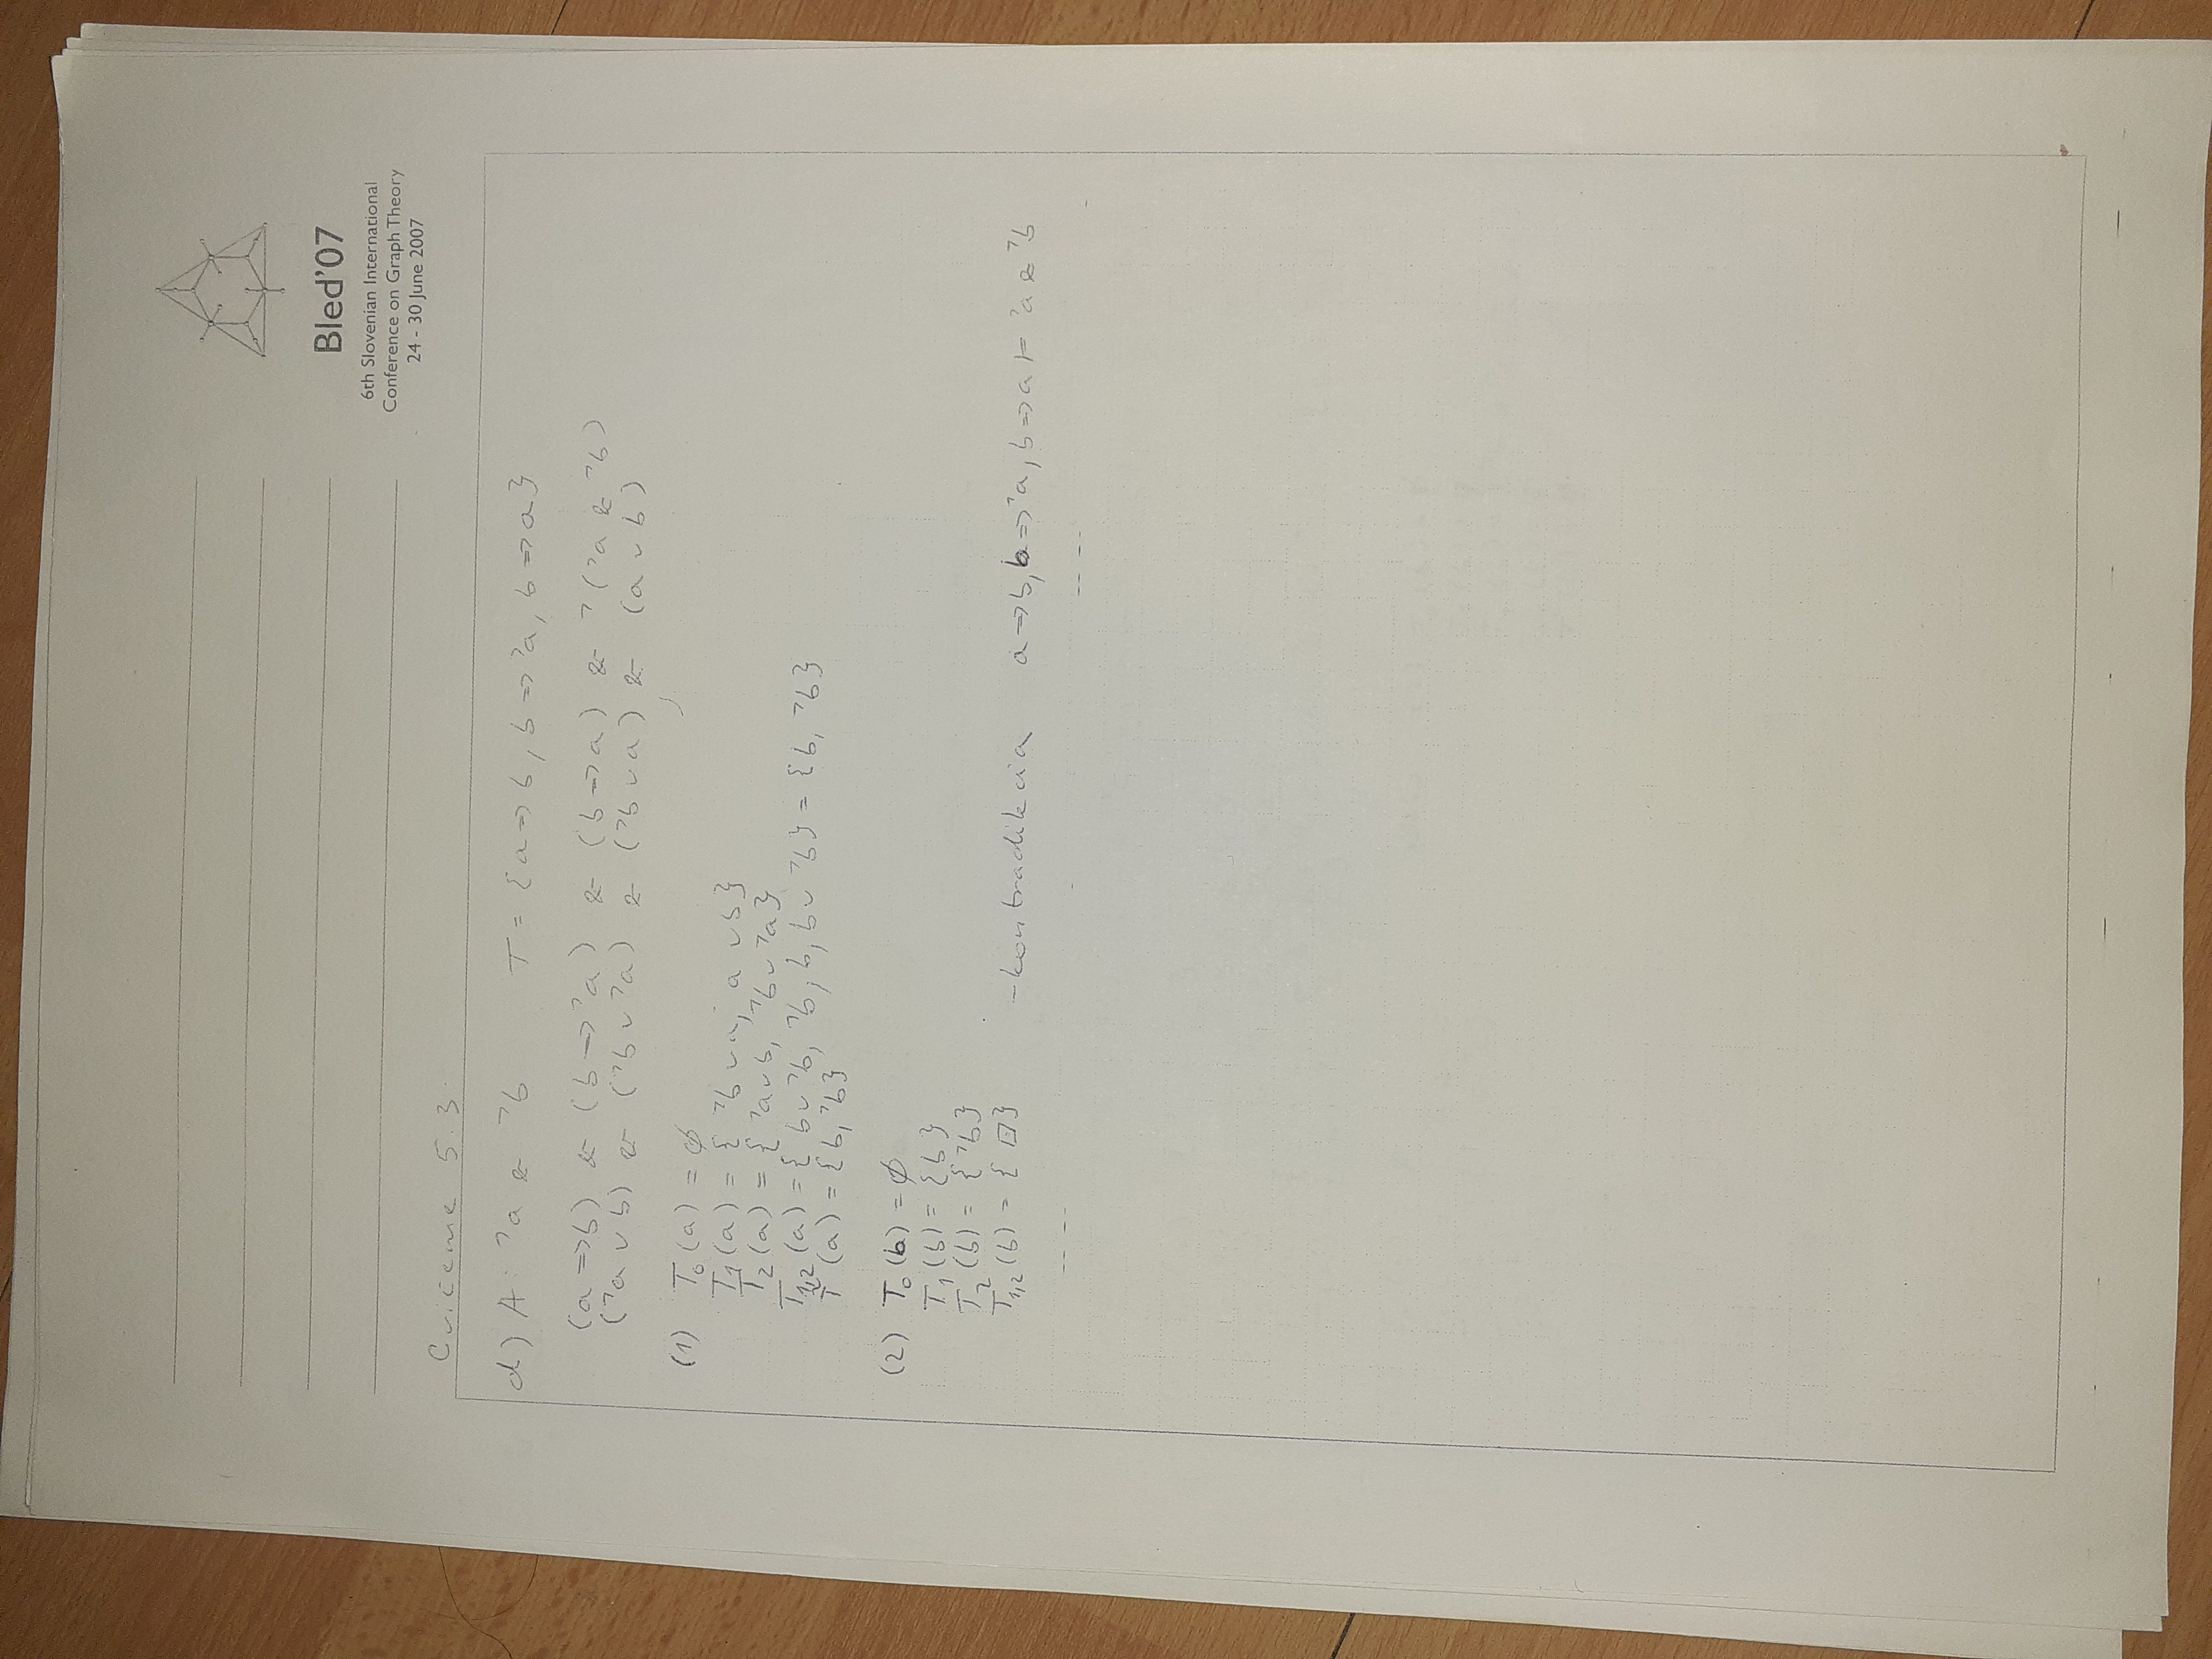 Bled'07
6th Slovenian International
Conference on Graph Theory
24 - 30 June 2007
Cvičenie 5.3.
d) A: ¬a & ¬b T = {a ⇒ b, b ⇒ ¬a, b ⇒ a}
(a ⇒ b) & (b ⇒ ¬a) & (b ⇒ a) & ¬(¬a & ¬b)
(¬a ∨ b) & (¬b ∨ ¬a) & (¬b ∨ a) & (a ∨ b)
(1) T₀(a) = ∅
T₁(a) = {¬b ∨ a, a ∨ b}
T₂(a) = {¬a ∨ b, ¬b ∨ ¬a}
T₁,₂(a) = {b ∨ ¬b, ¬b, b, b ∨ ¬b} = {b, ¬b}
(a) = {b, ¬b}
(2) T₀(b) = ∅
T₁(b) = {b}
T₂(b) = {¬b}
T₁,₂(b) = {□} - kontradikcia a ⇒ b, b ⇒ ¬a, b ⇒ a ⊨ ¬a & ¬b